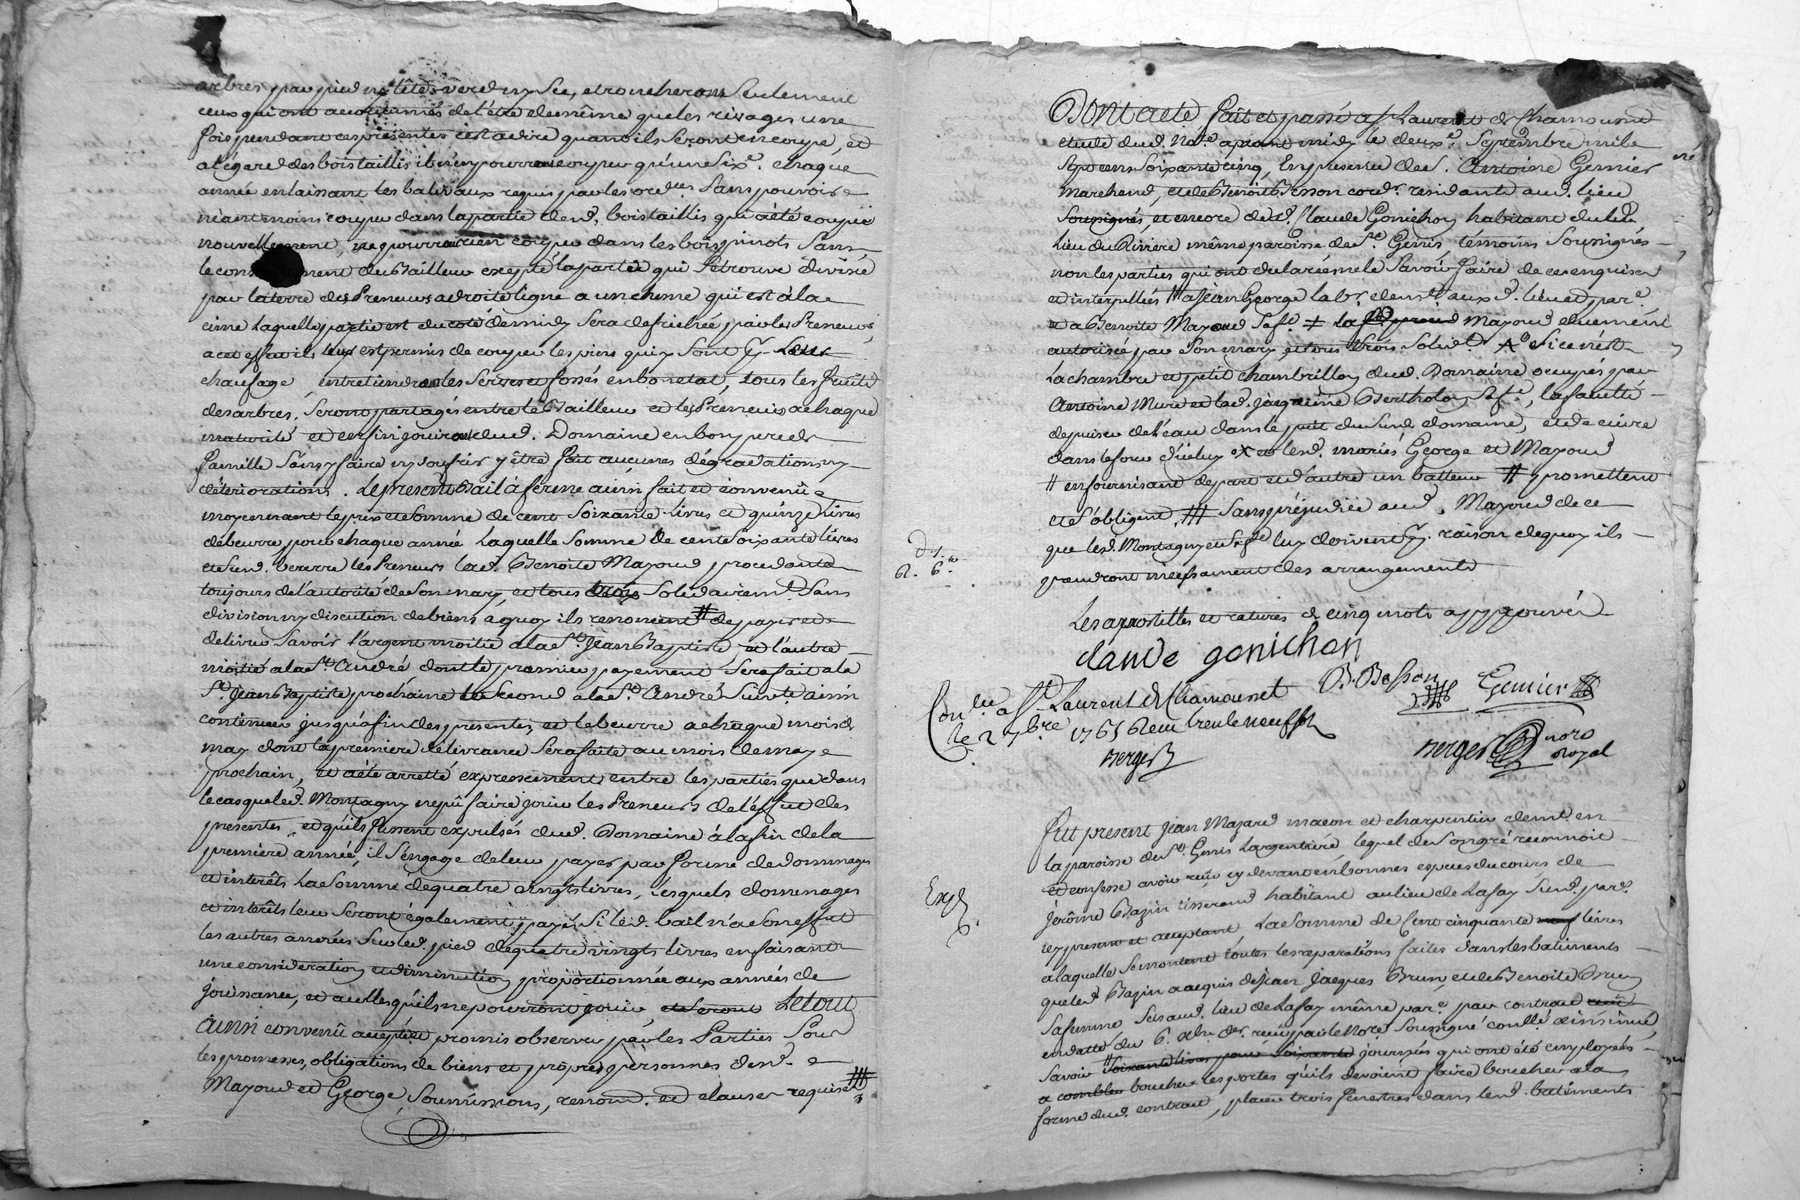 arbres par pied ny tête verd ny sec, etroncheront Seulement
ceux qui ont accoutumés de l'être de même que les rivages une
fois pendant ces presentes c'est a dire quand ils Seront en coupe, et
al'égard des bois taillis il n'en pourront couper qu'une six.e chaque
année en laissant les baliveaux requis par les ord.ces Sans pouvoir
néant moins couper dans la partie dud. bois taillis qui a été coupée
nouvellement, ne pourront rien couper dans les bois pinots Sans
le cons ment du Bailleur excepté la partie qui Se trouve divisée
par la terre des Preneurs a droite ligne a un chesne qui est à la
cime Laquelle partie est du coté de midy Sera defrichée par les Preneurs
a cet effet il leur est permis de couper les pins qui y Sont pr. Leur
chaufage, entretiendront les Serves et fossés en bon etat, tous les fruits
des arbres, Seront partagés entre le Bailleur et les Preneurs a chaque
maturité et en fin jouiront dud. Domaine en bon pere de
famille Sans y faire ny Souffrir y être fait aucunes dégradations ny
détériorations. Le present Bail à ferme ainsi fait et convenû
moyennant le prix et Somme de cent Soixante livres et quinze livres
de beurre pour chaque année Laquelle Somme de cent Soixante livres
et Sud. beurre les Preneurs lad. Benoite Mayoud procedant
toujours de l'autorité de Son mary, et tous trois Solidairem.t Sans
division ny discution de biens a quoy ils renoncent # de payer et
delivrer Savoir l'argent moitié a la St. Jean Baptiste et l'autre
moitié a la St. André dont le premier payement Sera fait a la
St. Jean Baptiste prochaine le Second a la St. André Suivte ainsi
continuer jusqu'a fin des presentes, et le beurre a chaque mois de
may dont la premiere délivrance Sera faite au mois de may
prochain, et a été arretté expressement entre les parties que dans
le cas que led. Montagny ne pû faire jouir les Preneurs de l'éffet des
presentes, et qu'ils fussent expulsés dud. Domaine à la fin de la
premiere année, il S'engage de leur payer par forme de dommages
et intérêts La Somme de quatre vingts livres, Lesquels dommages
et intérêts leur Seront également payés Si led. bail n'a de effet
les autres années Sur led. pied de quatre vingts livres en faisant
une consideration et diminution proportionnée aux années de
jouissance, et a celles qu'ils ne pourront jouir, et Seront Le tout
Ainsi convenû accepté et promis observer par les Parties Sous
les promesses, obligations de biens et propres personnes desd.
Mayoud et George, Soumissions, renond. et clauses requises #
Dont acte fait et passé a St Laurent de Chamousset
etude dud. No.re apres midy le deux.e Septembre mil
Sept cens Soixante cinq, En presence de S. Antoine Gemier
marchand, et de Benoît Besson cord.r residant aud. lieu
Soussignés, et encore de S.r Claude Gonichon habitant du
Lieu du Riviere même paroisse de St. Genis, témoins Soussignés
non les parties qui ont declaré ne le Savoir faire de ce enquises
et interpellées # a Jean George lab.r dem.t aux d. lieu et par.e
et a Benoite Mayoud Sa fe. # Mayoud duement
autorisée par Son mary, et tous trois Solid.t
La chambre et petit chambrillon dud. Domaine occupés par
Antoine Mure et lad. Jacqueme Bertholon Sa fe., la faculté
de puiser de l'eau dans le puit du Susd. domaine, et de cuire
dans le four d'icelui et lesd. mariés George et Mayoud
# en fournissant de part et d'autre un batteur # promettent
et S'obligent, # Sans préjudice aud. Mayoud de ce
que lesd. Montagny et Sa fe luy doivent pr. raison de quoy ils
prendront incessament des arrangements
Les apostilles et ratures de cinq mots approuvés
claude gonichon
B. Besson Gemier
Con.lu a St Laurent de Chamousset
le 2 7bre 1765 trente neuf s
Berger
Berger noro royal
Exp.
Fut present Jean Mazard maçon et charpentier demt. en
la paroisse de St. Genis Largentiere lequel de Son gré reconnoit
et confesse avoir reçu cy devant en bonnes especes du cours de
Jérôme Bazin tisserand habitant au lieu de Lafay Susd. par.e
icy present et acceptant La Somme de Cent cinquante livres
a laquelle Se montent toutes les reparations faites dans les batiments
que led. Bazin a acquis de Jean Jacques Brun, et de Benoite Brun
Sa femme, Sis aud. lieu de Lafay même par.e par contract
en datte du 6. xbr. der. reçu par le No.re Soussigné conllé et insinué,
Savoir # Soixante livres pour Soixante journées qui ont été employées
a combler boucher les portes qu'ils devoient faire boucher a la
forme dud. contract, placer trois fenestres dans lesd. batiments